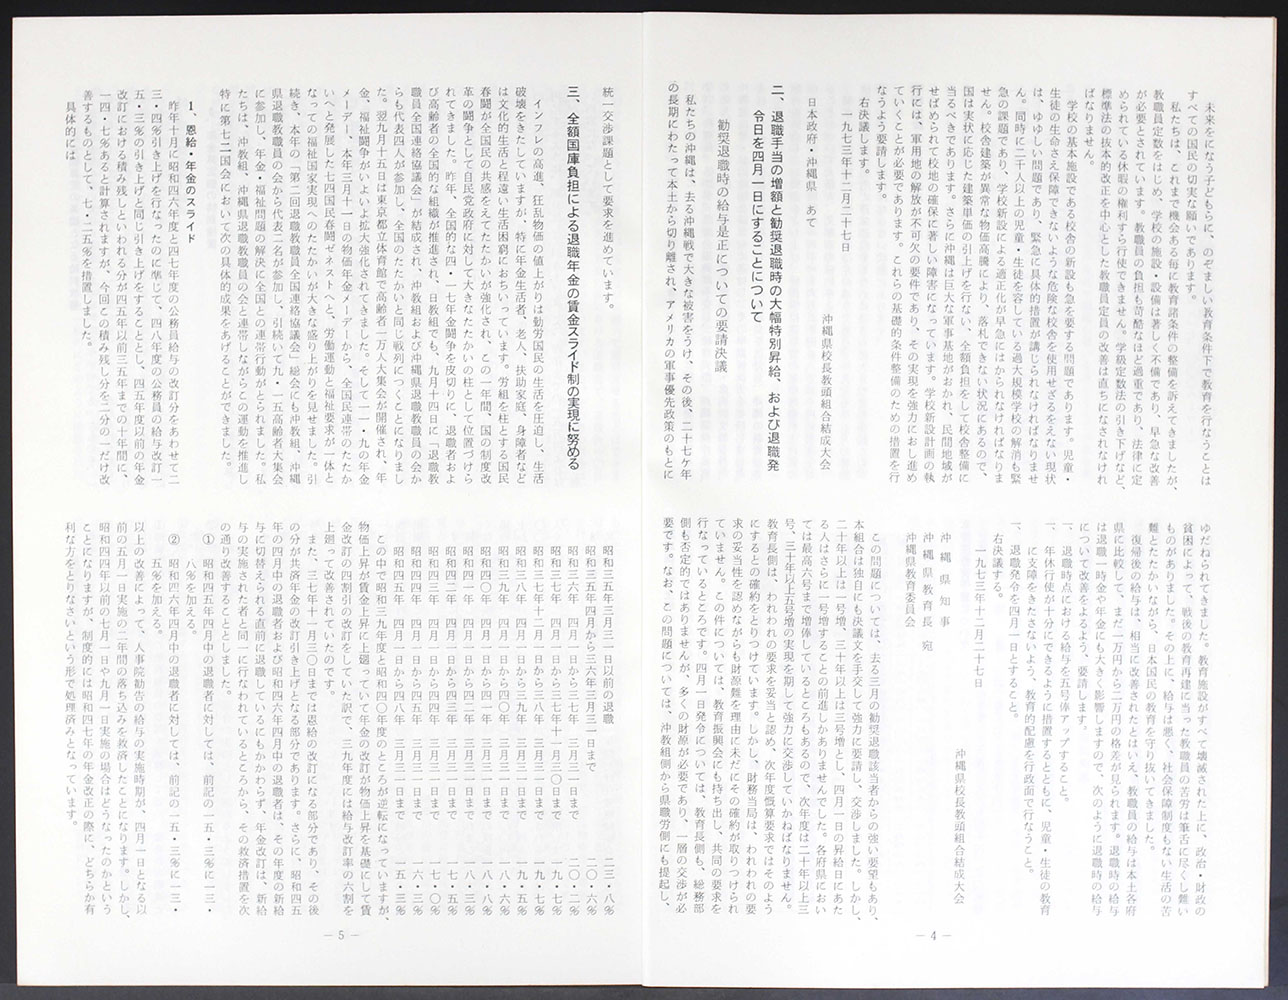 未来をになう子どもらに、のぞましい教育条件下で教育を行なうことは
すべての国民の切実な願いであります。
私たちは、これまで機会ある毎に教育諸条件の整備を訴えてきましたが、
教職員定数をはじめ、学校の施設・設備は著しく不備であり、早急な改善
が必要とされています。教職員の負担も苛酷なほど過重であり、法律に定
められている休暇の権利すら行使できません。学級定数法の引き下げなど、
標準法の抜本的改正を中心とした教職員定員の改善は直ちになされなけれ
ばなりません。
学校の基本施設である校舎の新設も急を要する問題であります。児童・
生徒の生命さえ保障できないような危険な校舎を使用せざるをえない現状
は、ゆゆしい問題であり、緊急に具体的措置が講じられなければなりませ
ん。同時に二千人以上の児童・生徒を容している過大規模学校の解消も緊
急の課題であり、学校新設による適正化が早急にはかられなければなりま
せん。校舎建築が異常な物価高騰により、落札できない状況にあるので、
国は実状に応じた建築単価の引上げを行ない、全額負担をして校舎整備に
当るべきであります。さらに沖縄は巨大な軍事基地がおかれ、民間地域が
せばめられて校地の確保に著しい障害になっています。学校新設計画の執
行には、軍用地の解放が不可欠の要件であり、その実現を強力におし進め
ていくことが必要であります。これらの基礎的条件整備のための措置を行
なうよう要請します。
右決議します。
一九七三年十月二十七日
沖縄県校長教頭組合結成大会
日本政府・沖縄県 あて
二、退職手当の増額と勧奨退職時の大幅特別昇給、および退職発
令日を四月一日にすることについて
勧奨退職時の給与是正についての要請決議
私たちの沖縄は、去る沖縄戦で大きな被害をうけ、その後、二十七ヶ年
の長期にわたって本土から切り離され、アメリカの軍事優先政策のもとに
ゆだねられてきました。教育施設がすべて壊滅された上に、政治・財政の
貧困によって、戦後の教育再建に当った教職員の苦労は筆舌に尽くし難い
ものがありました。その上に、給与は悪く、社会保障制度もない生活の苦
難とたたかいながら、日本国民の教育を守り抜いてきました。
復帰後の給与は、相当に改善されたとはいえ、教職員の給与は本土各府
県に比較して、まだ一万円から二万円の格差が見られます。退職時の給与
は退職一時金や年金にも大きく影響しますので、次のように退職時の給与
について改善をよるよう、要請します。
一、退職時点における給与を五号俸アップすること。
一、年休行使が十分にできるように措置するとともに、児童・生徒の教育
に支障をきたさないよう、教育的配慮を行政面で行なうこと。
一、退職発令を四月一日とすること。
右決議する。
一九七三年十二月二十七日
沖縄県校長教頭組合結成大会
沖縄県知事
沖縄県教育長 宛
沖縄県教育委員会
この問題については、去る三月の勧奨退職該当者からの強い要望もあり、
本組合は独自にも決議文を手交して強力に要請し、交渉しました。しかし、
二十年以上は一号増、三十年以上は三号増とし、四月一日の昇給日にあた
る人はさらに一号増することの前進しかありませんでした。各府県におい
ては最高六号まで増俸しているところもあるので、次年度は二十年以上三
号、三十年以上五号増の実現を期して強力に交渉していかねばなりません。
教育長側は、われわれの要求を妥当と認め、次年度概算要求ではそのよう
にするとの確約をとりつけています。しかし、財務当局は、われわれの要
求の妥当性を認めながらも財源難を理由に未だにその確約が取りつけられ
ていません。この件については、教育振興会にも持ち出し、共同の要求を
行なっているところです。四月一日発令については、教育長側も、総務部
側も否定的ではありませんが、多くの財源が必要であり、一層の交渉が必
要です。なお、この問題については、沖教組側から県職労側にも提起し、
— 4 —
統一交渉課題として要求を進めています。
三、全額国庫負担による退職年金の賃金スライド制の実現に努める
インフレの高進、狂乱物価の値上がりは勤労国民の生活を圧迫し、生活
破壊をきたしていますが、特に年金生活者、老人、扶助家庭、身障者など
は文化的生活と程遠い生活困窮におちいっています。労組を柱とする国民
春闘が全国民の共感をえてたたかいが強化され、この一年間、国の制度改
革の闘争として自民党政府に対して大きなたたかいの柱として位置づけら
れてきました。昨年、全国的な四・一七年金闘争を皮切りに、退職者およ
び高齢者の全国的な組織が推進され、日教組でも、九月十四日に「退職教
職員全国連絡協議会」が結成され、沖教組および沖縄県退職教職員の会か
らも代表四人が参加し、全国のたたかいと同じ戦列につくことになりまし
た。翌九月十五日は東京都立体育館で高齢者一万人大集会が開催され、年
金、福祉闘争がいよいよ拡大強化されてきました。そして一一・九の年金
メーデー、本年三月十一日の物価年金メーデーから、全国民連帯のたたか
いへと発展した七四国民春闘ゼネストへと、労働運動と福祉要求が一体と
なっての福祉国家実現へのたたかいが大きな盛り上がりを見せました。引
続き、本年の「第二回退職教職員全国連絡協議会」総会にも沖教組、沖縄
県退職教職員の会から代表二名が参加し、引続いて九・一五高齢者大集会
に参加し、年金・福祉問題の解決に全国との連帯行動がとられました。私
たちは、沖教組、沖縄県退職教職員の会との連帯しながらこの運動を推進し
特に第七十二国会において次の具体的成果をあげることができました。
1、恩給・年金のスライド
昨年十月に昭和四六年度と四七年度の公務員給与の改訂分をあわせて二
三・四%引き上げを行なったのに準じて、四八年度の公務員の給与改訂一
五・三%の引き上げと同じ引き上げをすることとし、四五年度以前の年金
改訂における積み残しといわれる分が四五年以前三五年までの十年間に、
一四・七%あると計算されますが、今回この積み残し分を二分の一だけ改
善するものとして、七・二五%を措置しました。
具体的には
昭和三五年三月三一日以前の退職 二三・八%
昭和三五年四月から三六年三月三一日まで 二〇・六%
昭和三六年 四月一日から三七年 三月三一日まで 二〇・二%
昭和三七年 四月一日から三七年十一月三〇日まで 一九・七%
昭和三七年十二月一日から三九年 三月三一日まで 一九・五%
昭和三九年 四月一日から四〇年 三月三一日まで 一九・一%
昭和四〇年 四月一日から四一年 三月三一日まで 一八・六%
昭和四一年 四月一日から四二年 三月三一日まで 一八・三%
昭和四二年 四月一日から四三年 三月三一日まで 一七・五%
昭和四三年 四月一日から四四年 三月三一日まで 一七・〇%
昭和四四年 四月一日から四五年 三月三一日まで 一六・三%
昭和四五年 四月一日から四八年 三月三一日まで 一五・三%
この中で昭和三九年度と昭和四〇年度のところが逆転になっていますが、
物価上昇が賃金上昇に上廻っていて年金の改訂が物価上昇を基礎にして賃
金改訂の四割引分の改訂をしていた訳で、三九年度には給与改訂率の六割を
上廻って改善されていたのです。
また、三七年十一月三〇日までは恩給の改訂になる部分であり、その後
の分が共済年金の改訂引き上げとなる部分であります。さらに、昭和四五
年の四月中の退職者および昭和四六年四月中の退職者は、その年度の新給
与に切替えられる直前に退職しているにもかかわらず、年金改訂は、新給
与の実施された者と同一に行なわれているところから、その救済措置を次
の通り改善することとしました。
① 昭和四五年四月中の退職者に対しては、前記の一五・三%に一三・
八%を加える。
② 昭和四六年四月中の退職者に対しては、前記の一五・三%に一三・
五%を加える。
以上の改善によって、人事院勧告の給与の実施時期が、四月一日となる以
前の五月一日実施の二年間の落ち込みを救済したことになります。しかし、
昭和四四年以前の七月一日や九月一日実施の場合はどうなったのかという
ことになりますが、制度的には昭和四七年の年金改正の際に、どちらか有
利な方をとりなさいという形で処理済みとなっています。
— 5 —